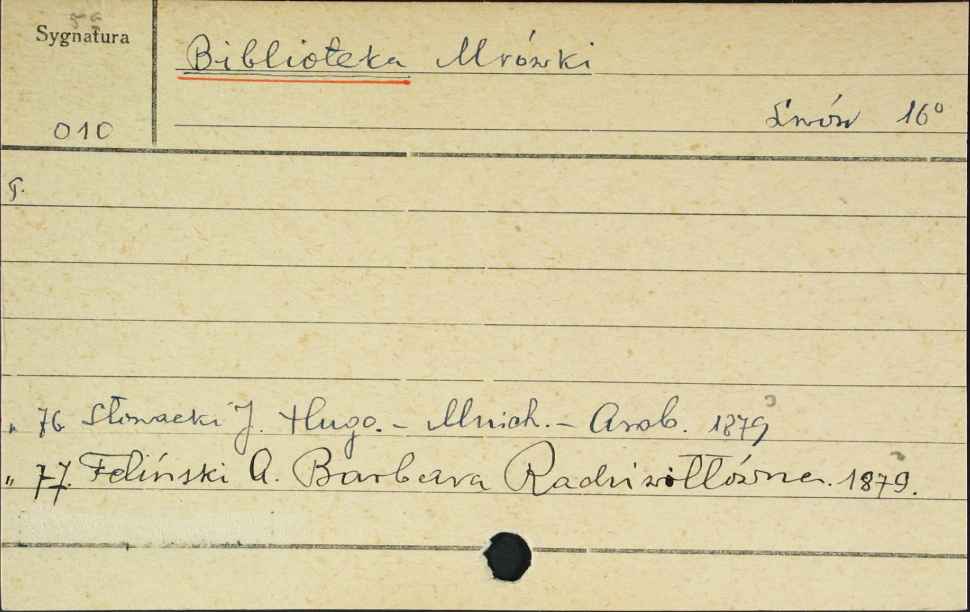 Sygnatura
Biblioteka Mrówki
Lwów 16°
010
T.
„ 76 Słowacki J. Hugo. - Mnich. - Arab. 1879
„ 77. Feliński A. Barbara Radziwiłłówna. 1879.